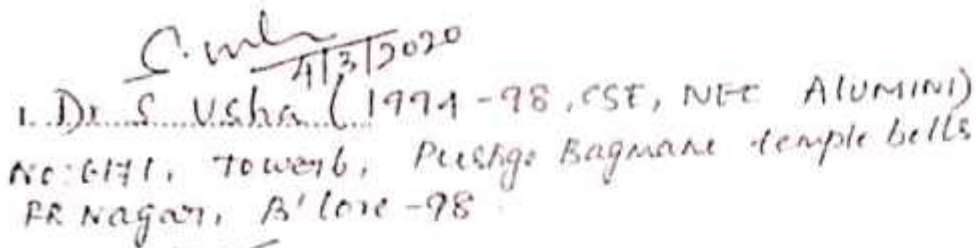 4/3/2020
1. Dr S Usha (1994-98, CSE, NEC AlUMINI)
No: 6171, Tower6, Prestige Bagmane temple bells
RR Nagar, B'lore -98